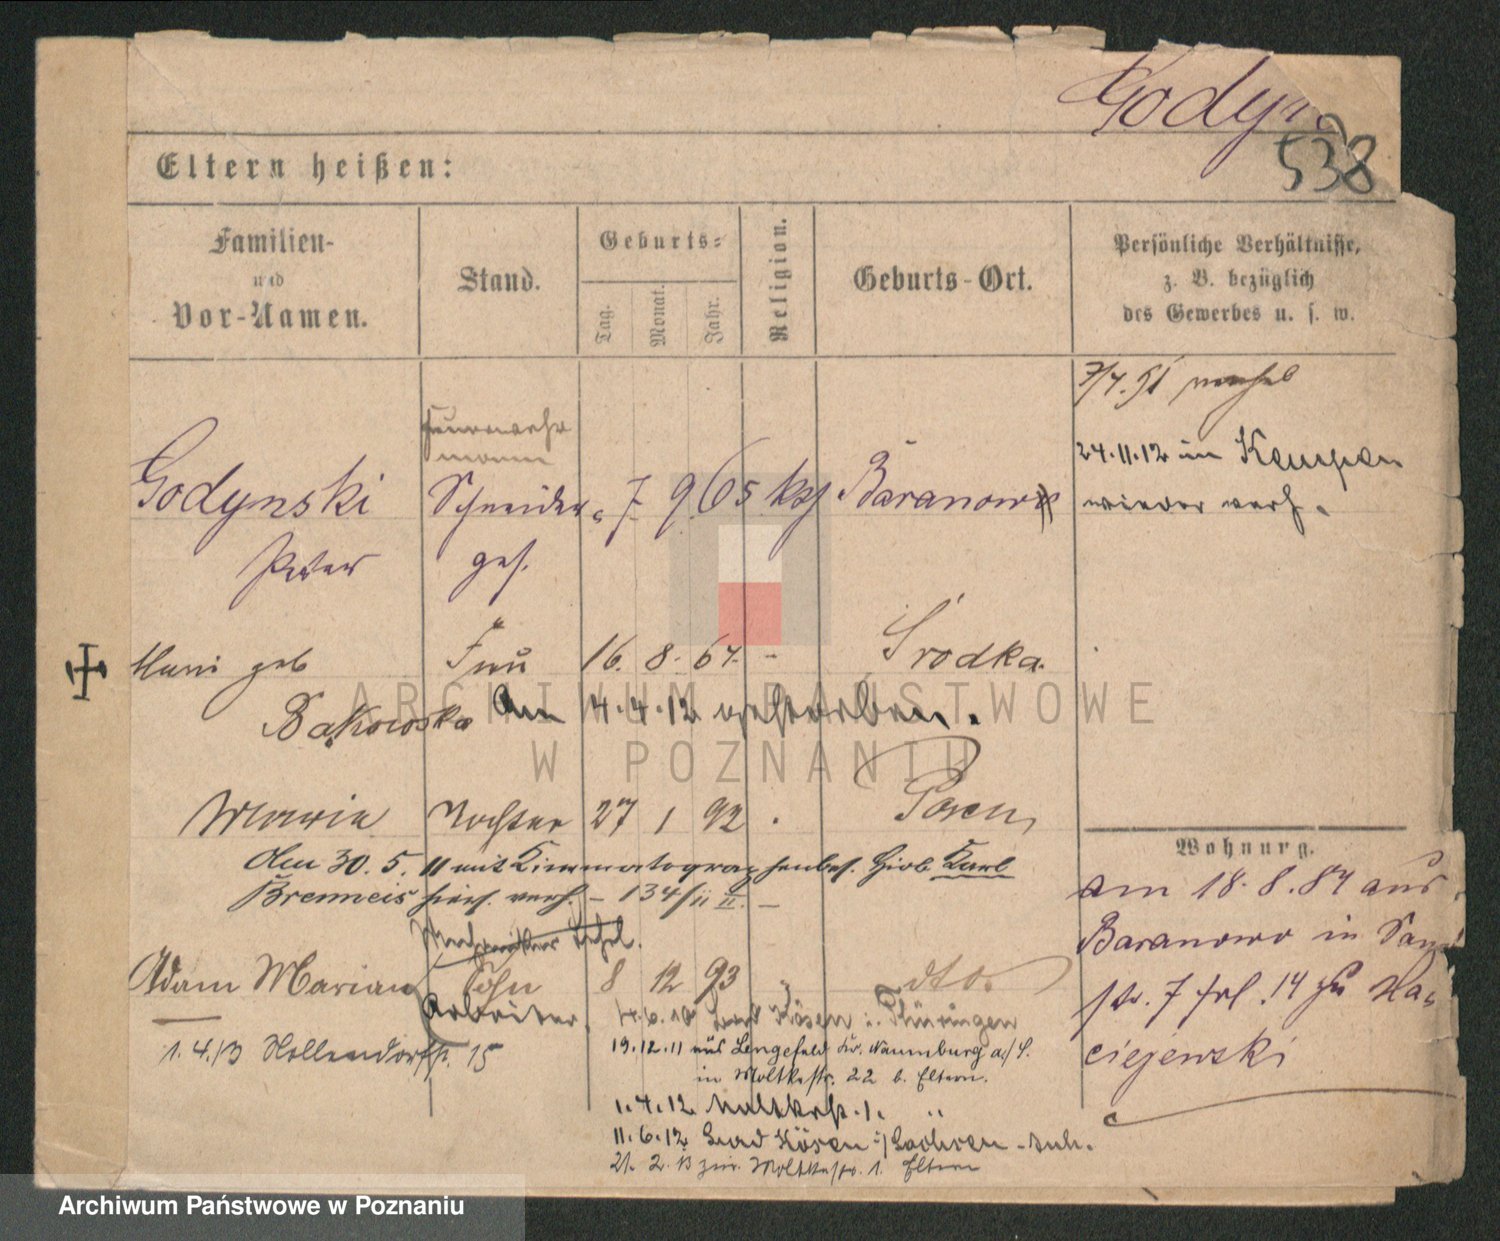 538
Eltern heißen:
Familien-
und
Vor-Namen.
Stand.
Geburts-
Tag.
Monat.
Jahr.
Religion.
Geburts-Ort.
Persönliche Verhältnisse,
z. B. bezüglich
des Gewerbes u. s. w.
24.11.12 in Kempen
wieder verh.
Feuerwehr
mann
Godynski Schneider 7 9 65 kath Baranowo
Peter ges.
geb Frau 16. 8. 67. - Środka.
Bąkowska Am 4.4.12 verstorben.
Maria Tochter 27 1 92 Posen
den 30. 5. 11 mit Kinematographenbes. Karl
Brenneis hier. verh. – 134/11 II. –
Adam Marian Sohn 8 12 93 dto.
Arbeiter. 4.6.10 Bad Kösen i. Thüringen
1.4.13 Hollendorfstr. 15
19.12.11 aus Lengefeld Kr. Naumburg a/S.
in Moltkestr. 22 b. Eltern.
1.4.12 Moltkestr. 1. "
11.6.12 Bad Kösen i/Sachsen
21. 2. 13 zur. Moltkestr. 1. Eltern
Wohnung.
am 18.8.87 aus
Baranowo in
str. 7 14 zu Ma-
ciejewski
ARCHIWUM PAŃSTWOWE
W POZNANIU
Archiwum Państwowe w Poznaniu